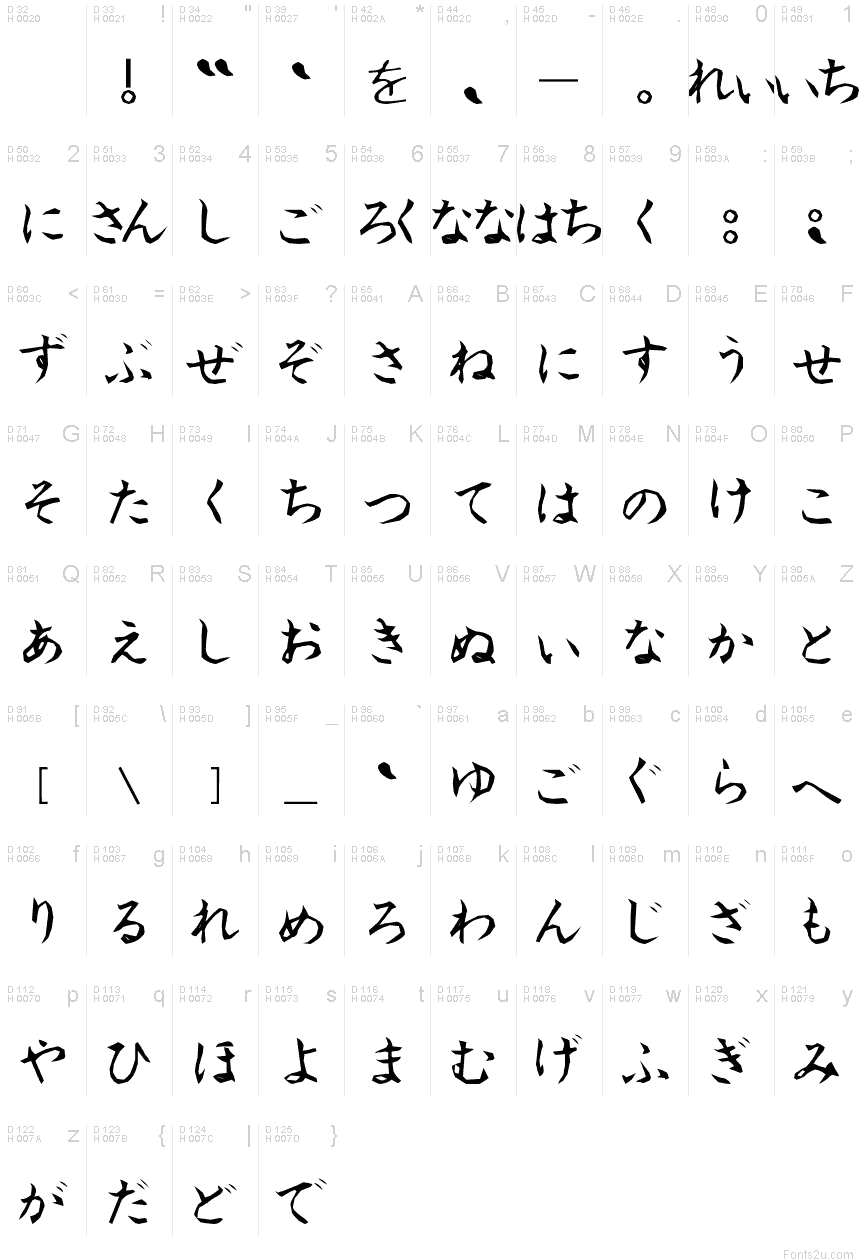 D 32 H 0020 D 33 H 0021 ! D 34 H 0022 " D 39 H 0027 ' D 42 H 002A * D 44 H 002C , D 45 H 002D - D 46 H 002E . D 48 H 0030 0 D 49 H 0031 1
! “ 、 を 、 － 。 れい いち
D 50 H 0032 2 D 51 H 0033 3 D 52 H 0034 4 D 53 H 0035 5 D 54 H 0036 6 D 55 H 0037 7 D 56 H 0038 8 D 57 H 0039 9 D 58 H 003A : D 59 H 003B ;
に さん し ご ろく なな はち く : ;
D 60 H 003C < D 61 H 003D = D 62 H 003E > D 63 H 003F ? D 65 H 0041 A D 66 H 0042 B D 67 H 0043 C D 68 H 0044 D D 69 H 0045 E D 70 H 0046 F
ず ぶ ぜ ぞ さ ね に す う せ
D 71 H 0047 G D 72 H 0048 H D 73 H 0049 I D 74 H 004A J D 75 H 004B K D 76 H 004C L D 77 H 004D M D 78 H 004E N D 79 H 004F O D 80 H 0050 P
そ た く ち つ て は の け こ
D 81 H 0051 Q D 82 H 0052 R D 83 H 0053 S D 84 H 0054 T D 85 H 0055 U D 86 H 0056 V D 87 H 0057 W D 88 H 0058 X D 89 H 0059 Y D 90 H 005A Z
あ え し お き ぬ い な か と
D 91 H 005B [ D 92 H 005C \ D 93 H 005D ] D 95 H 005F _ D 96 H 0060 ` D 97 H 0061 a D 98 H 0062 b D 99 H 0063 c D 100 H 0064 d D 101 H 0065 e
[ \ ] _ 、 ゆ ご ぐ ら へ
D 102 H 0066 f D 103 H 0067 g D 104 H 0068 h D 105 H 0069 i D 106 H 006A j D 107 H 006B k D 108 H 006C l D 109 H 006D m D 110 H 006E n D 111 H 006F o
り る れ め ろ わ ん じ ざ も
D 112 H 0070 p D 113 H 0071 q D 114 H 0072 r D 115 H 0073 s D 116 H 0074 t D 117 H 0075 u D 118 H 0076 v D 119 H 0077 w D 120 H 0078 x D 121 H 0079 y
や ひ ほ よ ま む げ ふ ぎ み
D 122 H 007A z D 123 H 007B { D 124 H 007C | D 125 H 007D }
が だ ど で
Fonts2u.com